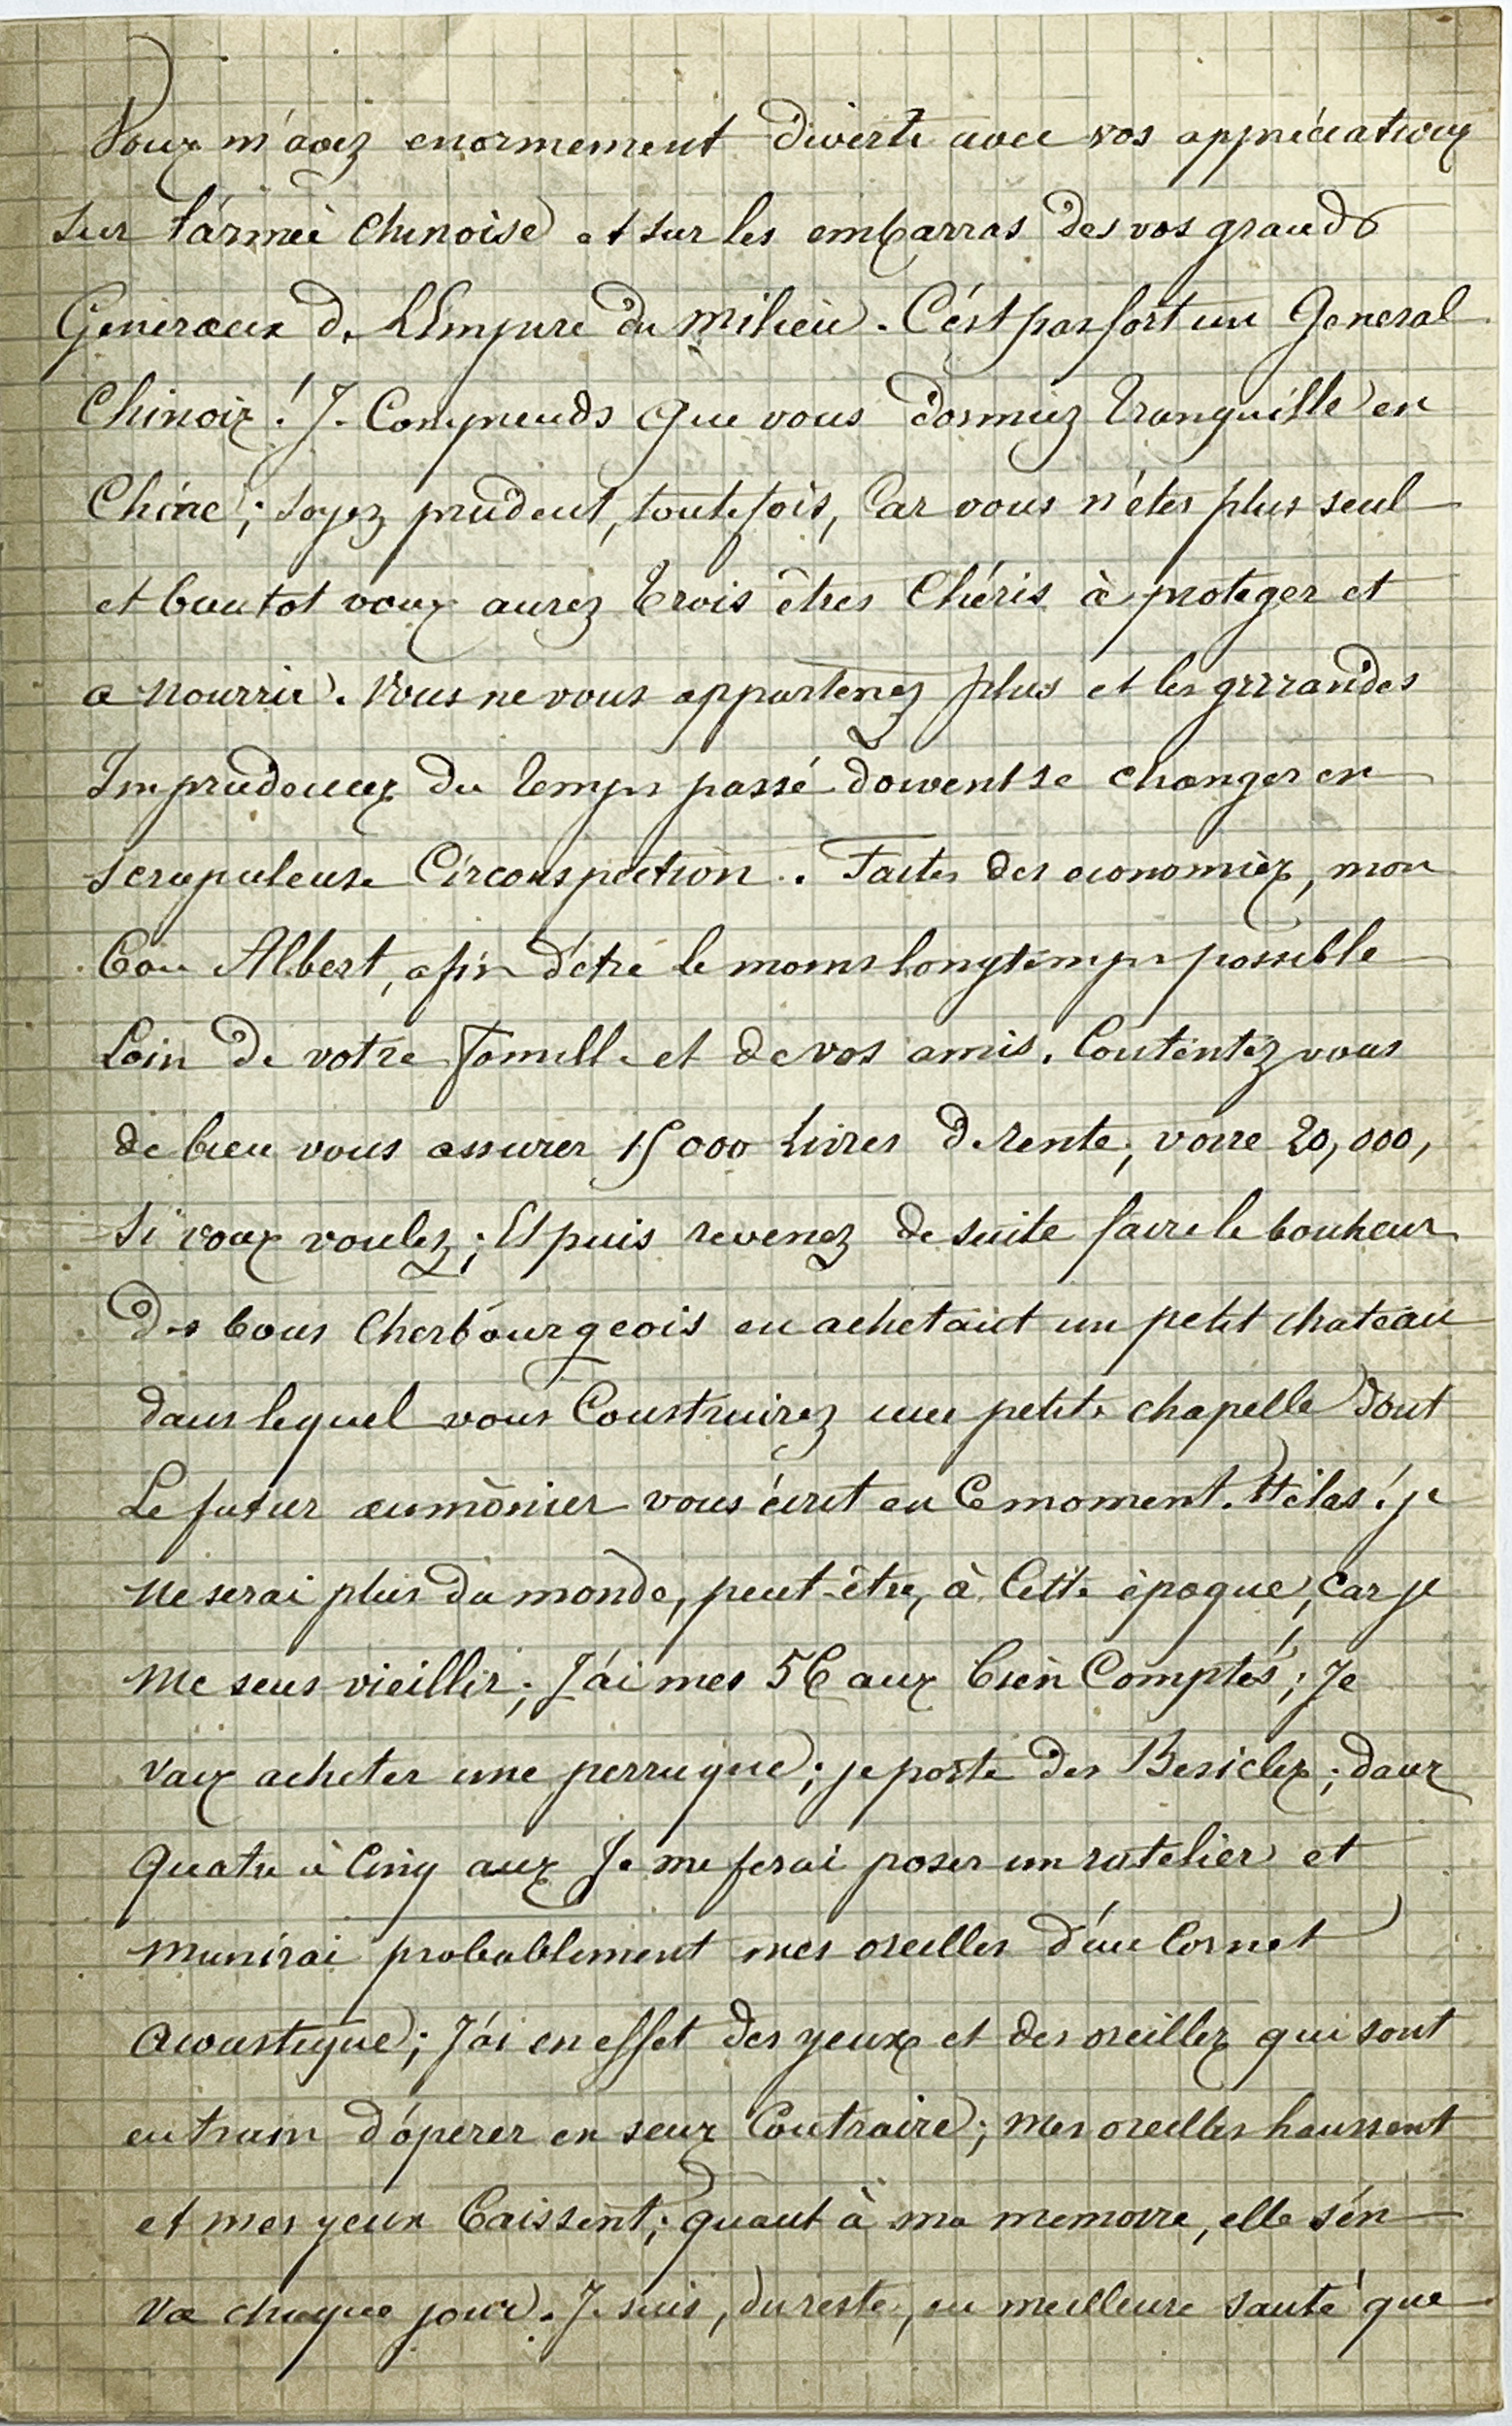 Vous m'avez enormement diverti avec vos appréciations
sur l'armée chinoise et sur les embarras des vos grands
Generaux de L'Empire du milieu. C'est pas fort un General
Chinois! Je Comprends que vous dormiez tranquille en
Chine; soyez prudent, toutefois, Car vous n'étes plus seul
et bientot vous aurez trois êtres Chéris à proteger et
a nourrir. Vous ne vous appartenez plus et les grrrandes
Imprudences du temps passé doivent se changer en
scrupuleuse Circonspection. Faites des economies, mon
bon Albert, afin d'étre le moins longtemps possible
Loin de votre famille et de vos amis. Contentez vous
de bien vous assurer 15000 Livres de rente, voire 20,000,
si vous voulez; Et puis revenez de suite faire le bonheur
Des bons Cherbourgeois en achetant un petit chateau
dans lequel vous Construirez une petite chapelle dont
Le futur aumònier vous écrit en Ce moment. Hélas! je
ne serai plus du monde, peut-être, à Cette époque, Car je
me sens vieillir; J'ai mes 56 ans bien Comptés; Je
vais acheter une perruque; je porte des Besicles; dans
quatre à Cinq ans Je me ferai poser un ratelier et
munirai probablement mes oreilles d'un Cornet
acoustique; J'ai en effet des yeux et des oreilles qui sont
en train d'operer en sens Contraire; mes oreilles haussent
et mes yeux baissent; quant à ma memoire, elle s'en
va chaque jour. Je suis, du reste, en meilleure santé que